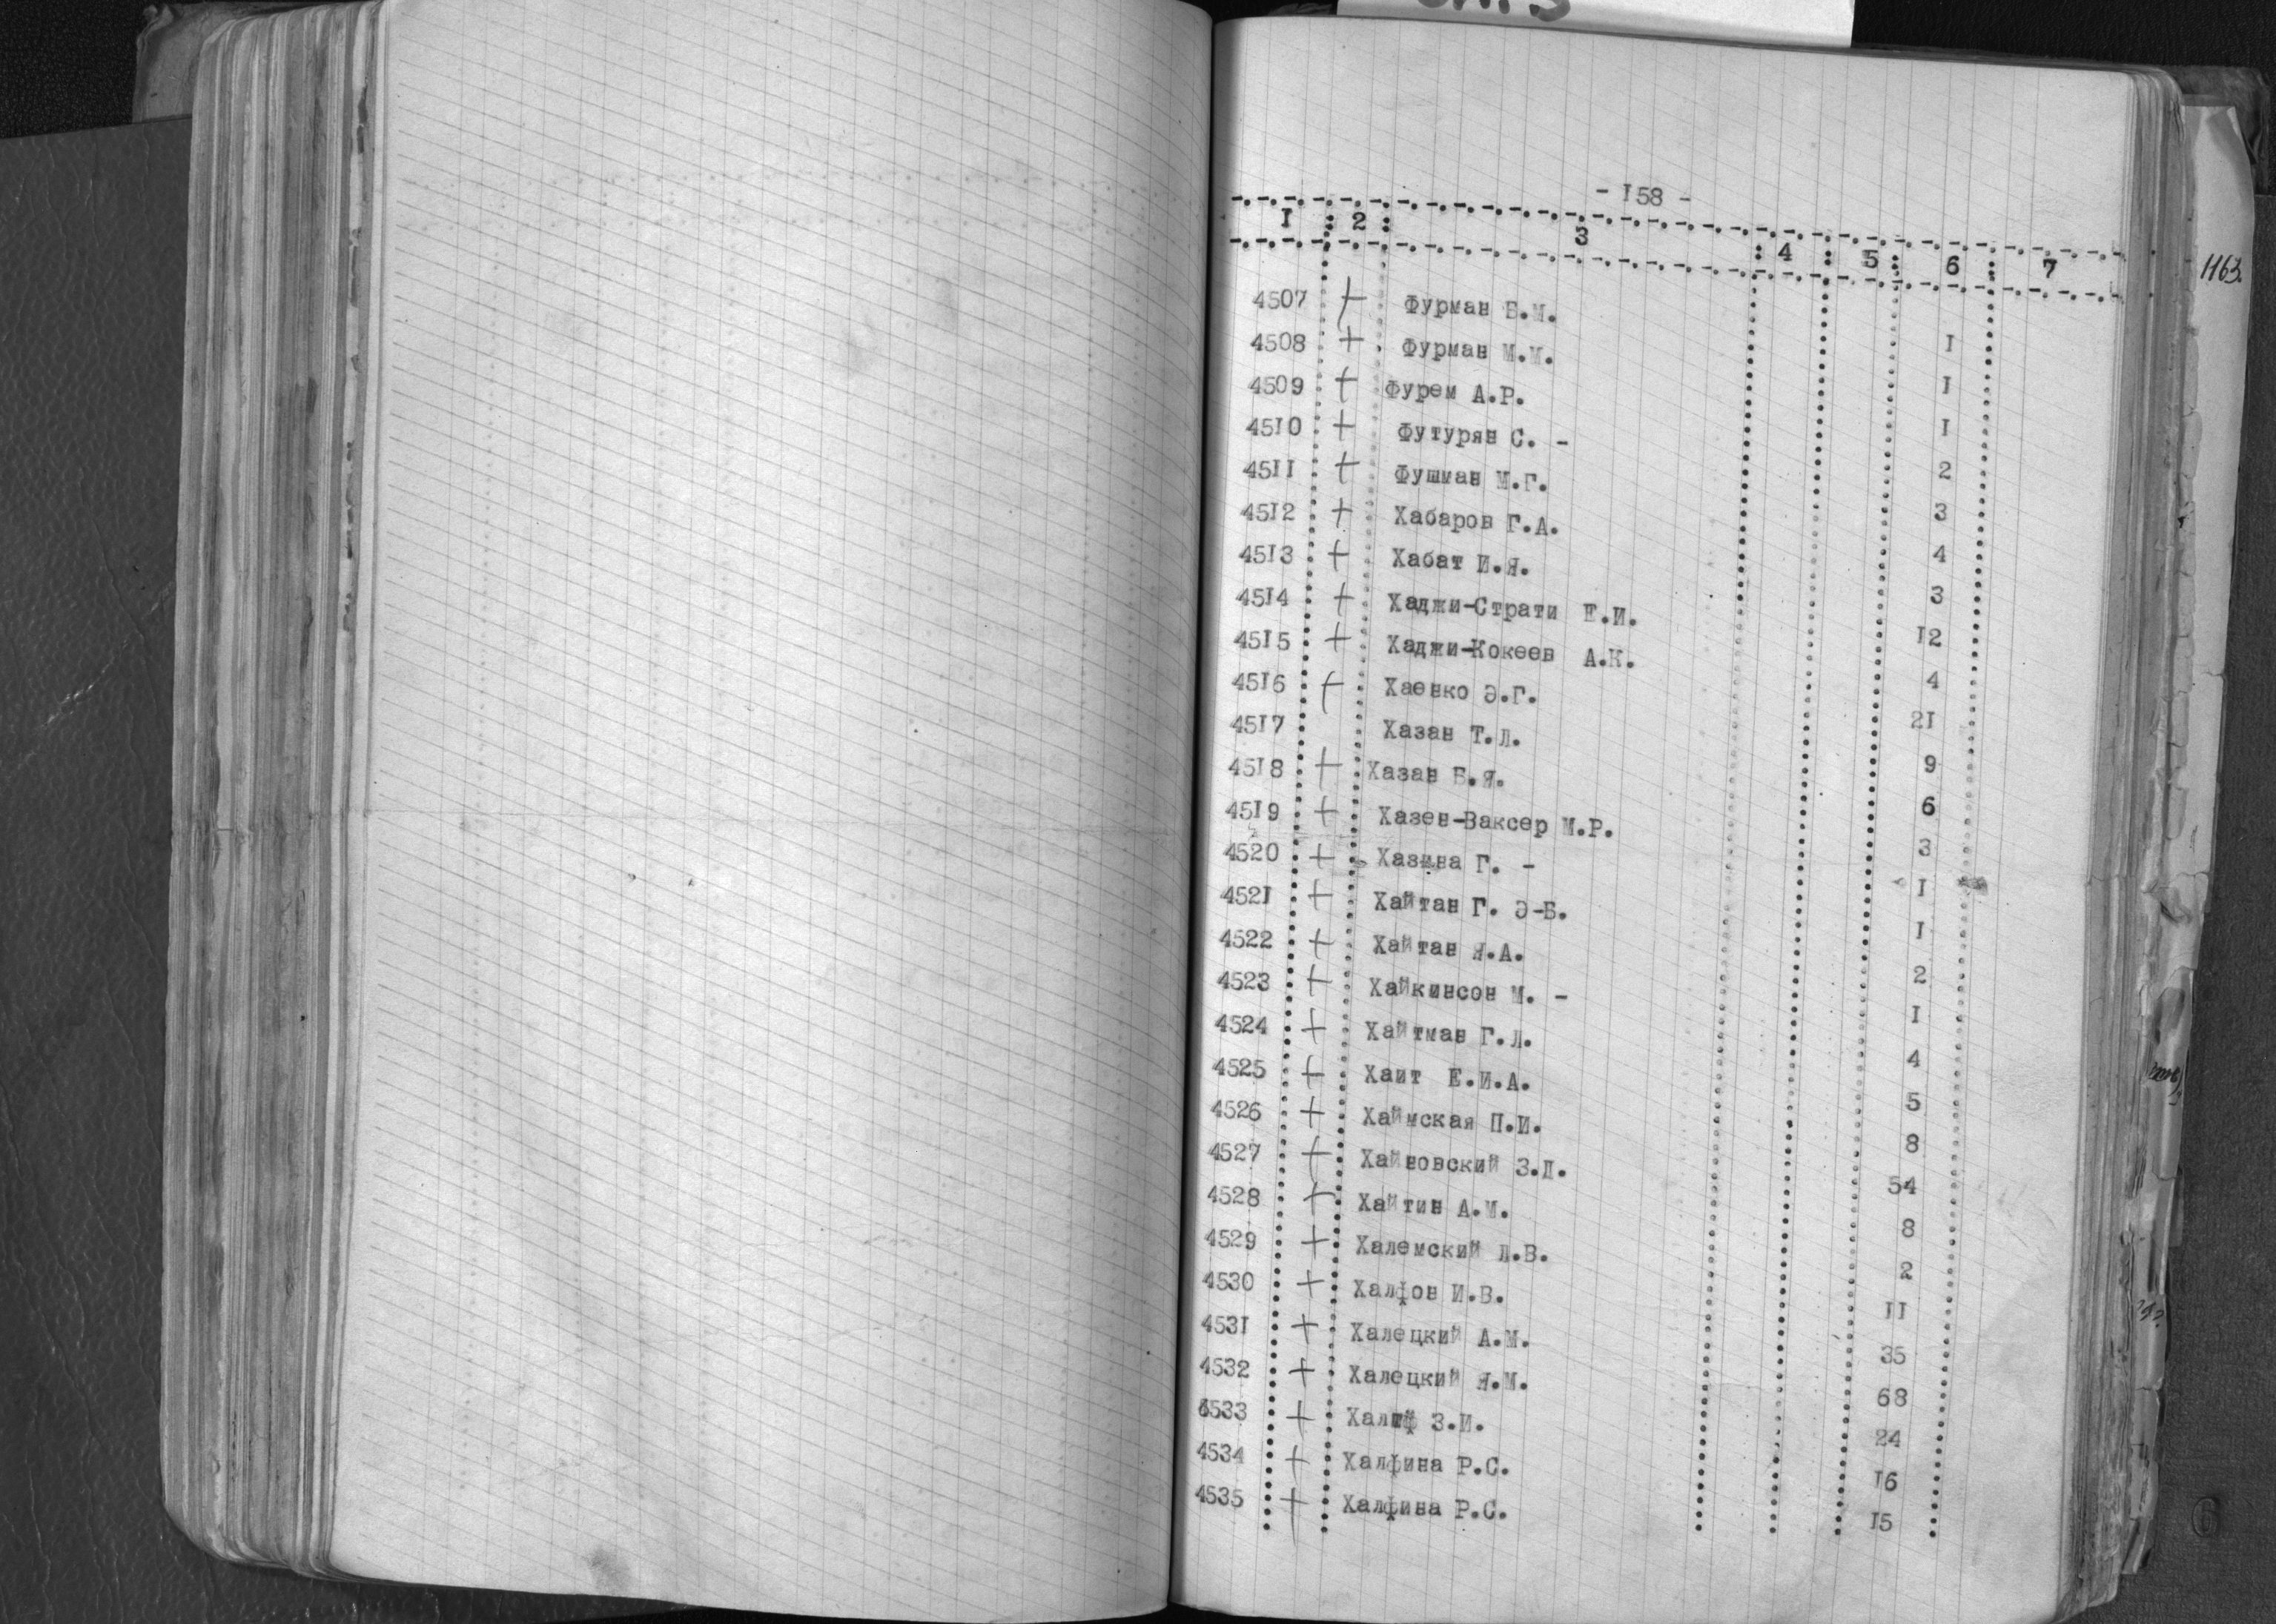 - I58 -
I : 2 : 3 : 4 : 5 : 6 : 7
II63.
4507 + Фурман Б.М. I
4508 + Фурман М.М. I
4509 + Фурем А.Р. I
45I0 + Футурян С. - 2
45II + Фушман М.Г. 3
45I2 + Хабаров Г.А. 4
45I3 + Хабат И.Я. 3
45I4 + Хаджи-Страти Е.И. I2
45I5 + Хаджи-Кокеев А.К. 4
45I6 + Хаенко Э.Г. 2I
45I7 Хазан Т.Л. 9
45I8 + Хазан Б.Я. 6
45I9 + Хазен-Ваксер М.Р. 3
4520 + Хазина Г. - I
452I + Хайтан Г. Э-Б. I
4522 + Хайтан Я.А. 2
4523 + Хайкинсон М. - I
4524 + Хайтман Г.Л. 4
4525 + Хаит Е.И.А. 5
4526 + Хаймская П.И. 8
4527 + Хайновский З.Д. 54
4528 + Хайтин А.М. 8
4529 + Халемский Л.В. 2
4530 + Халфон И.В. II
453I + Халецкий А.М. 35
4532 + Халецкий Я.М. 68
4533 + З.И. 24
4534 + Халфина Р.С. I6
4535 + Халфина Р.С. I5